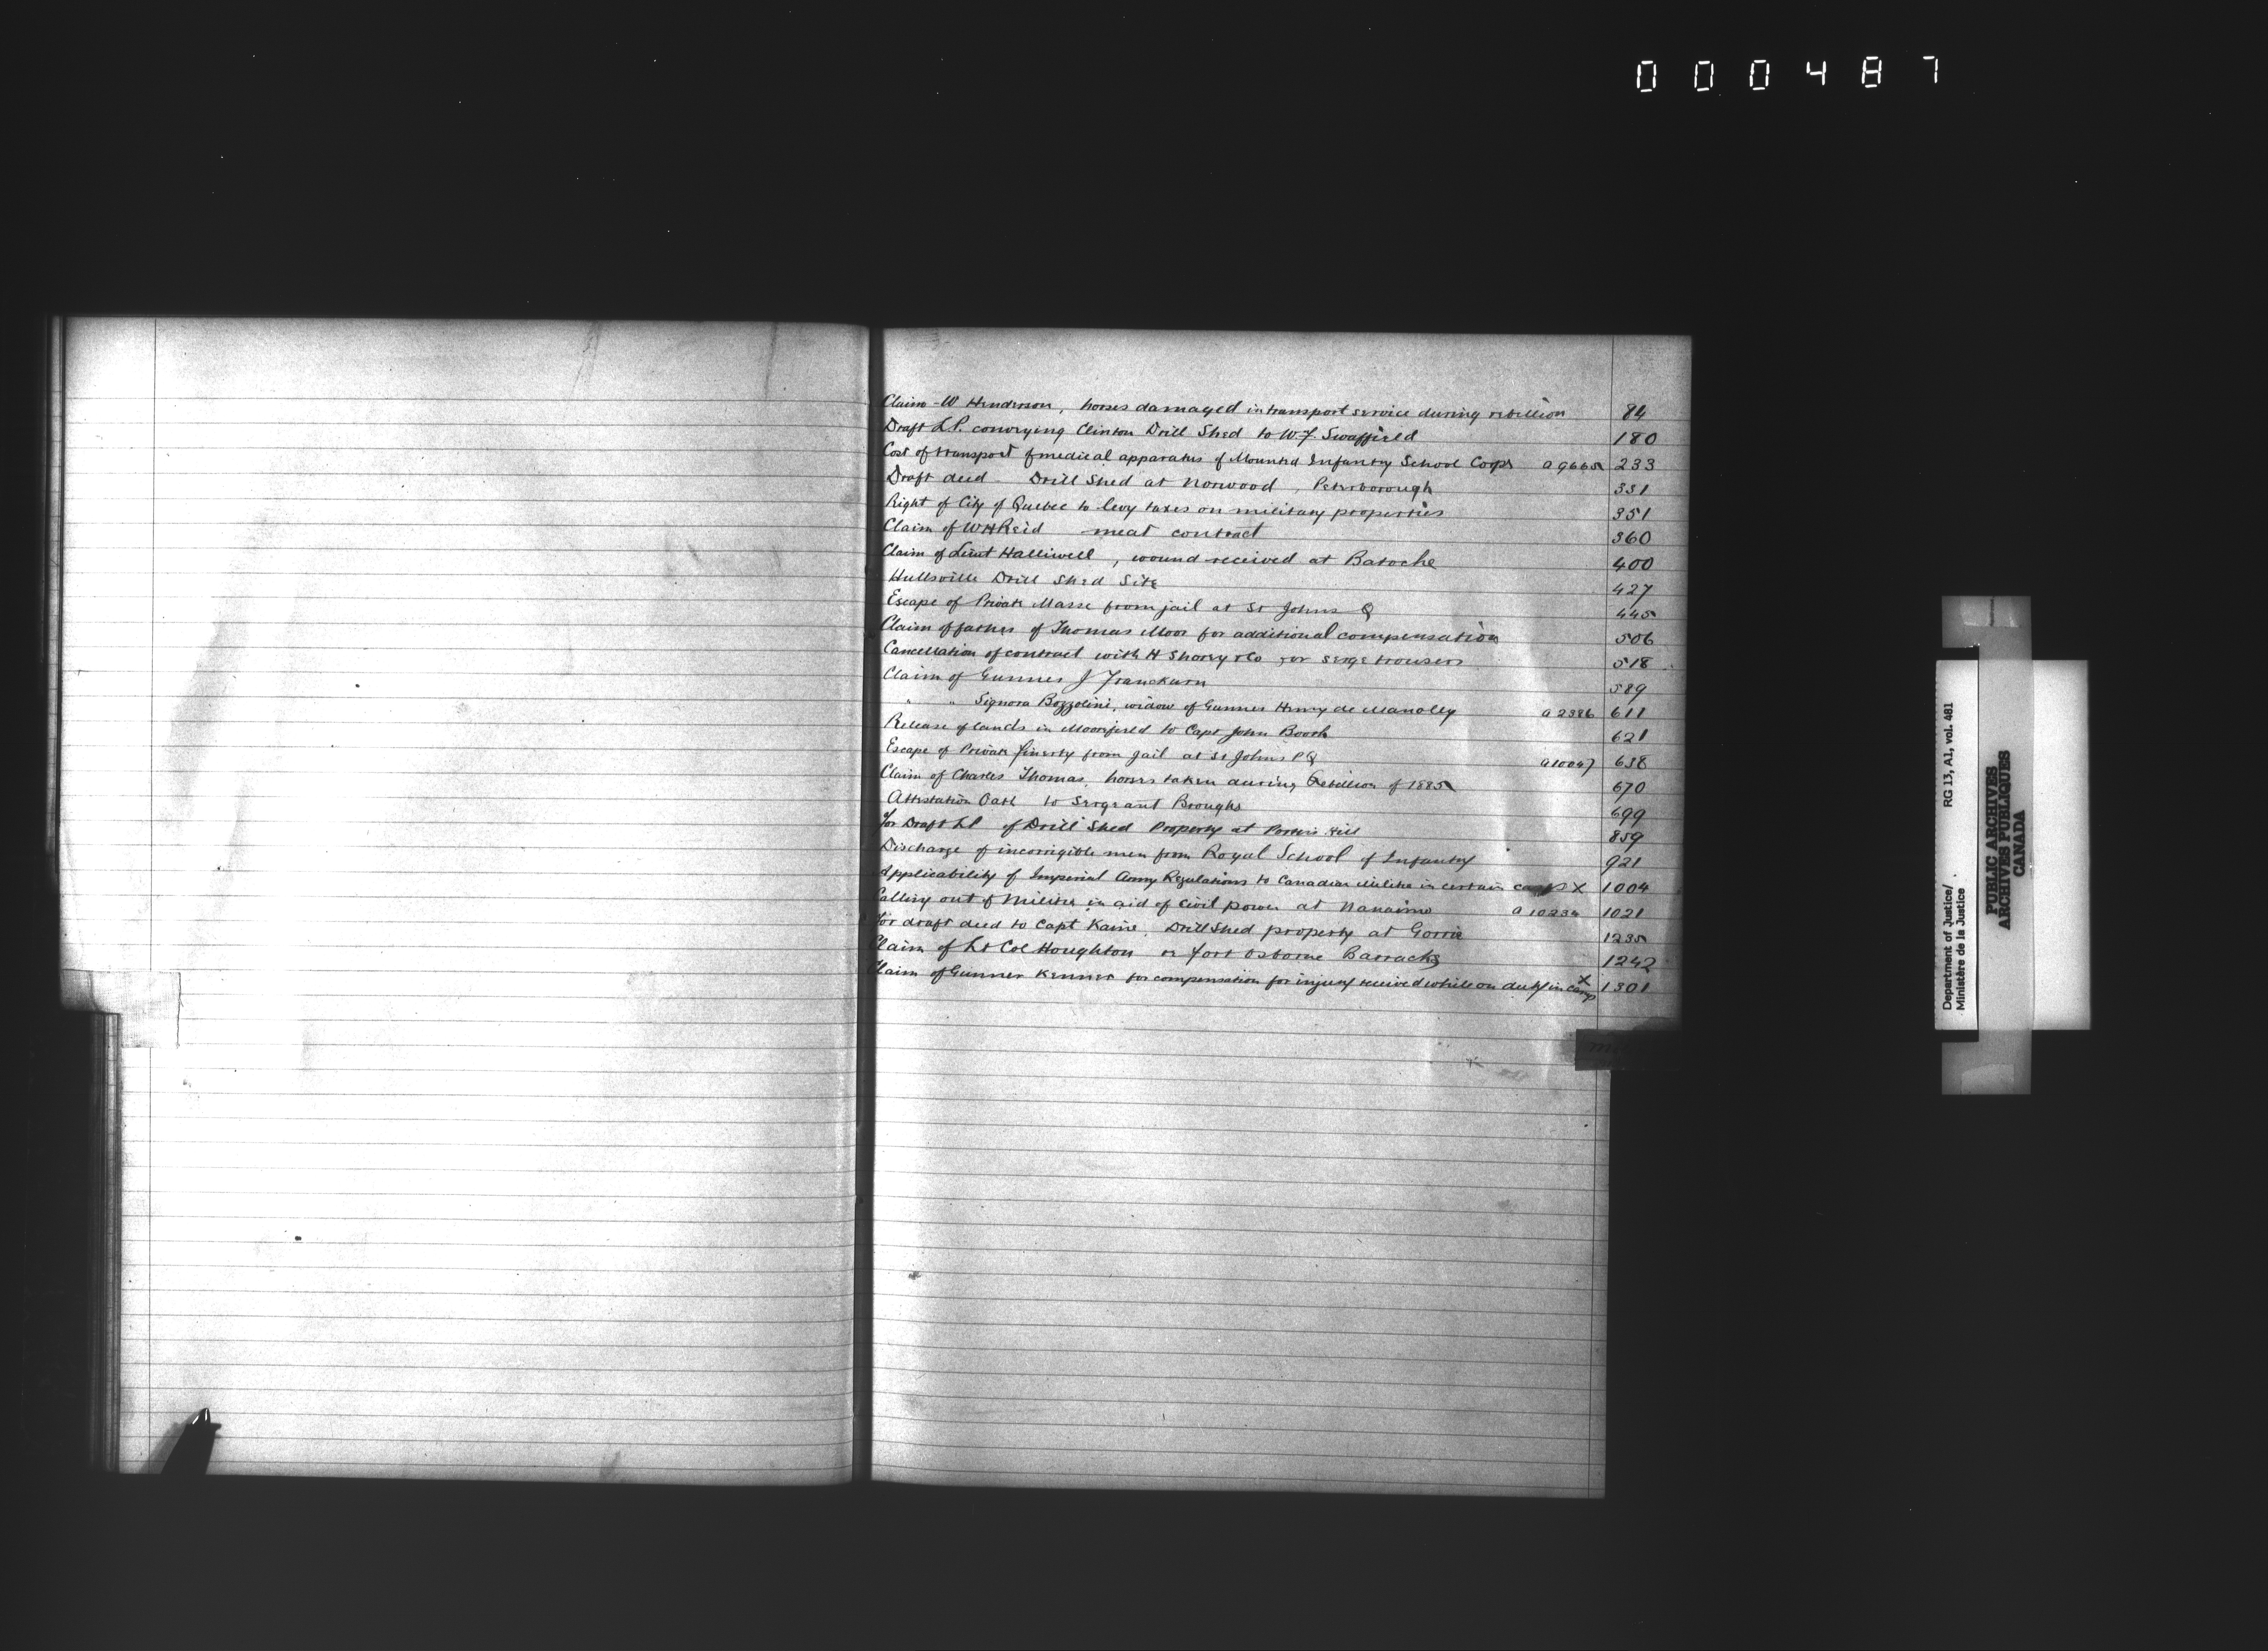 0 0 0 4 8 7
Claim - W Henderson, horses damaged in transport service during rebellion 84
Draft L.P. conveying Clinton Drill Shed to W.F. Swaffield 180
Cost of transport of medical apparatus of Mounted Infantry School Corps a 9665 233
Draft deed - Drill Shed at Norwood, Peterborough 331
Right of City of Quebec to levy taxes on military properties 351
Claim of W H Reid meat contract 360
Claim of Lieut Halliwell, wound received at Batoche 400
Hullsville Drill Shed Site 427
Escape of Private Masse from jail at St Johns Q 445
Claim of father of Thomas Moor for additional compensation 506
Cancellation of contract with H Shorey & Co for serge trousers 518
Claim of Gunner J Franckum 589
" " Signora Bozzolini, widow of Gunner Henry de Manolly a 2386 611
Release of lands in Moorefield to Capt John Booth 621
Escape of Private Finerty from Jail at St Johns PQ a 10047 638
Claim of Charles Thomas, horses taken during Rebellion of 1885 670
Attestation Oath to Sergeant Broughs 699
for Draft LP of Drill Shed Property at Porters Hill 859
Discharge of incorrigible men from Royal School of Infantry 921
Applicability of Imperial Army Regulations to Canadian Militia in certain cases X 1004
Calling out of Militia in aid of civil power at Nanaimo a 10234 1021
for draft deed to Capt Kaine, Drill Shed property at Gorrie 1235
Claim of Lt Col Houghton re Fort Osborne Barracks 1242
Claim of Gunner Kenner for compensation for injury received while on duty in camp X 1301
Department of Justice/ RG 13, A1, vol. 481
Ministère de la Justice
PUBLIC ARCHIVES
ARCHIVES PUBLIQUES
CANADA